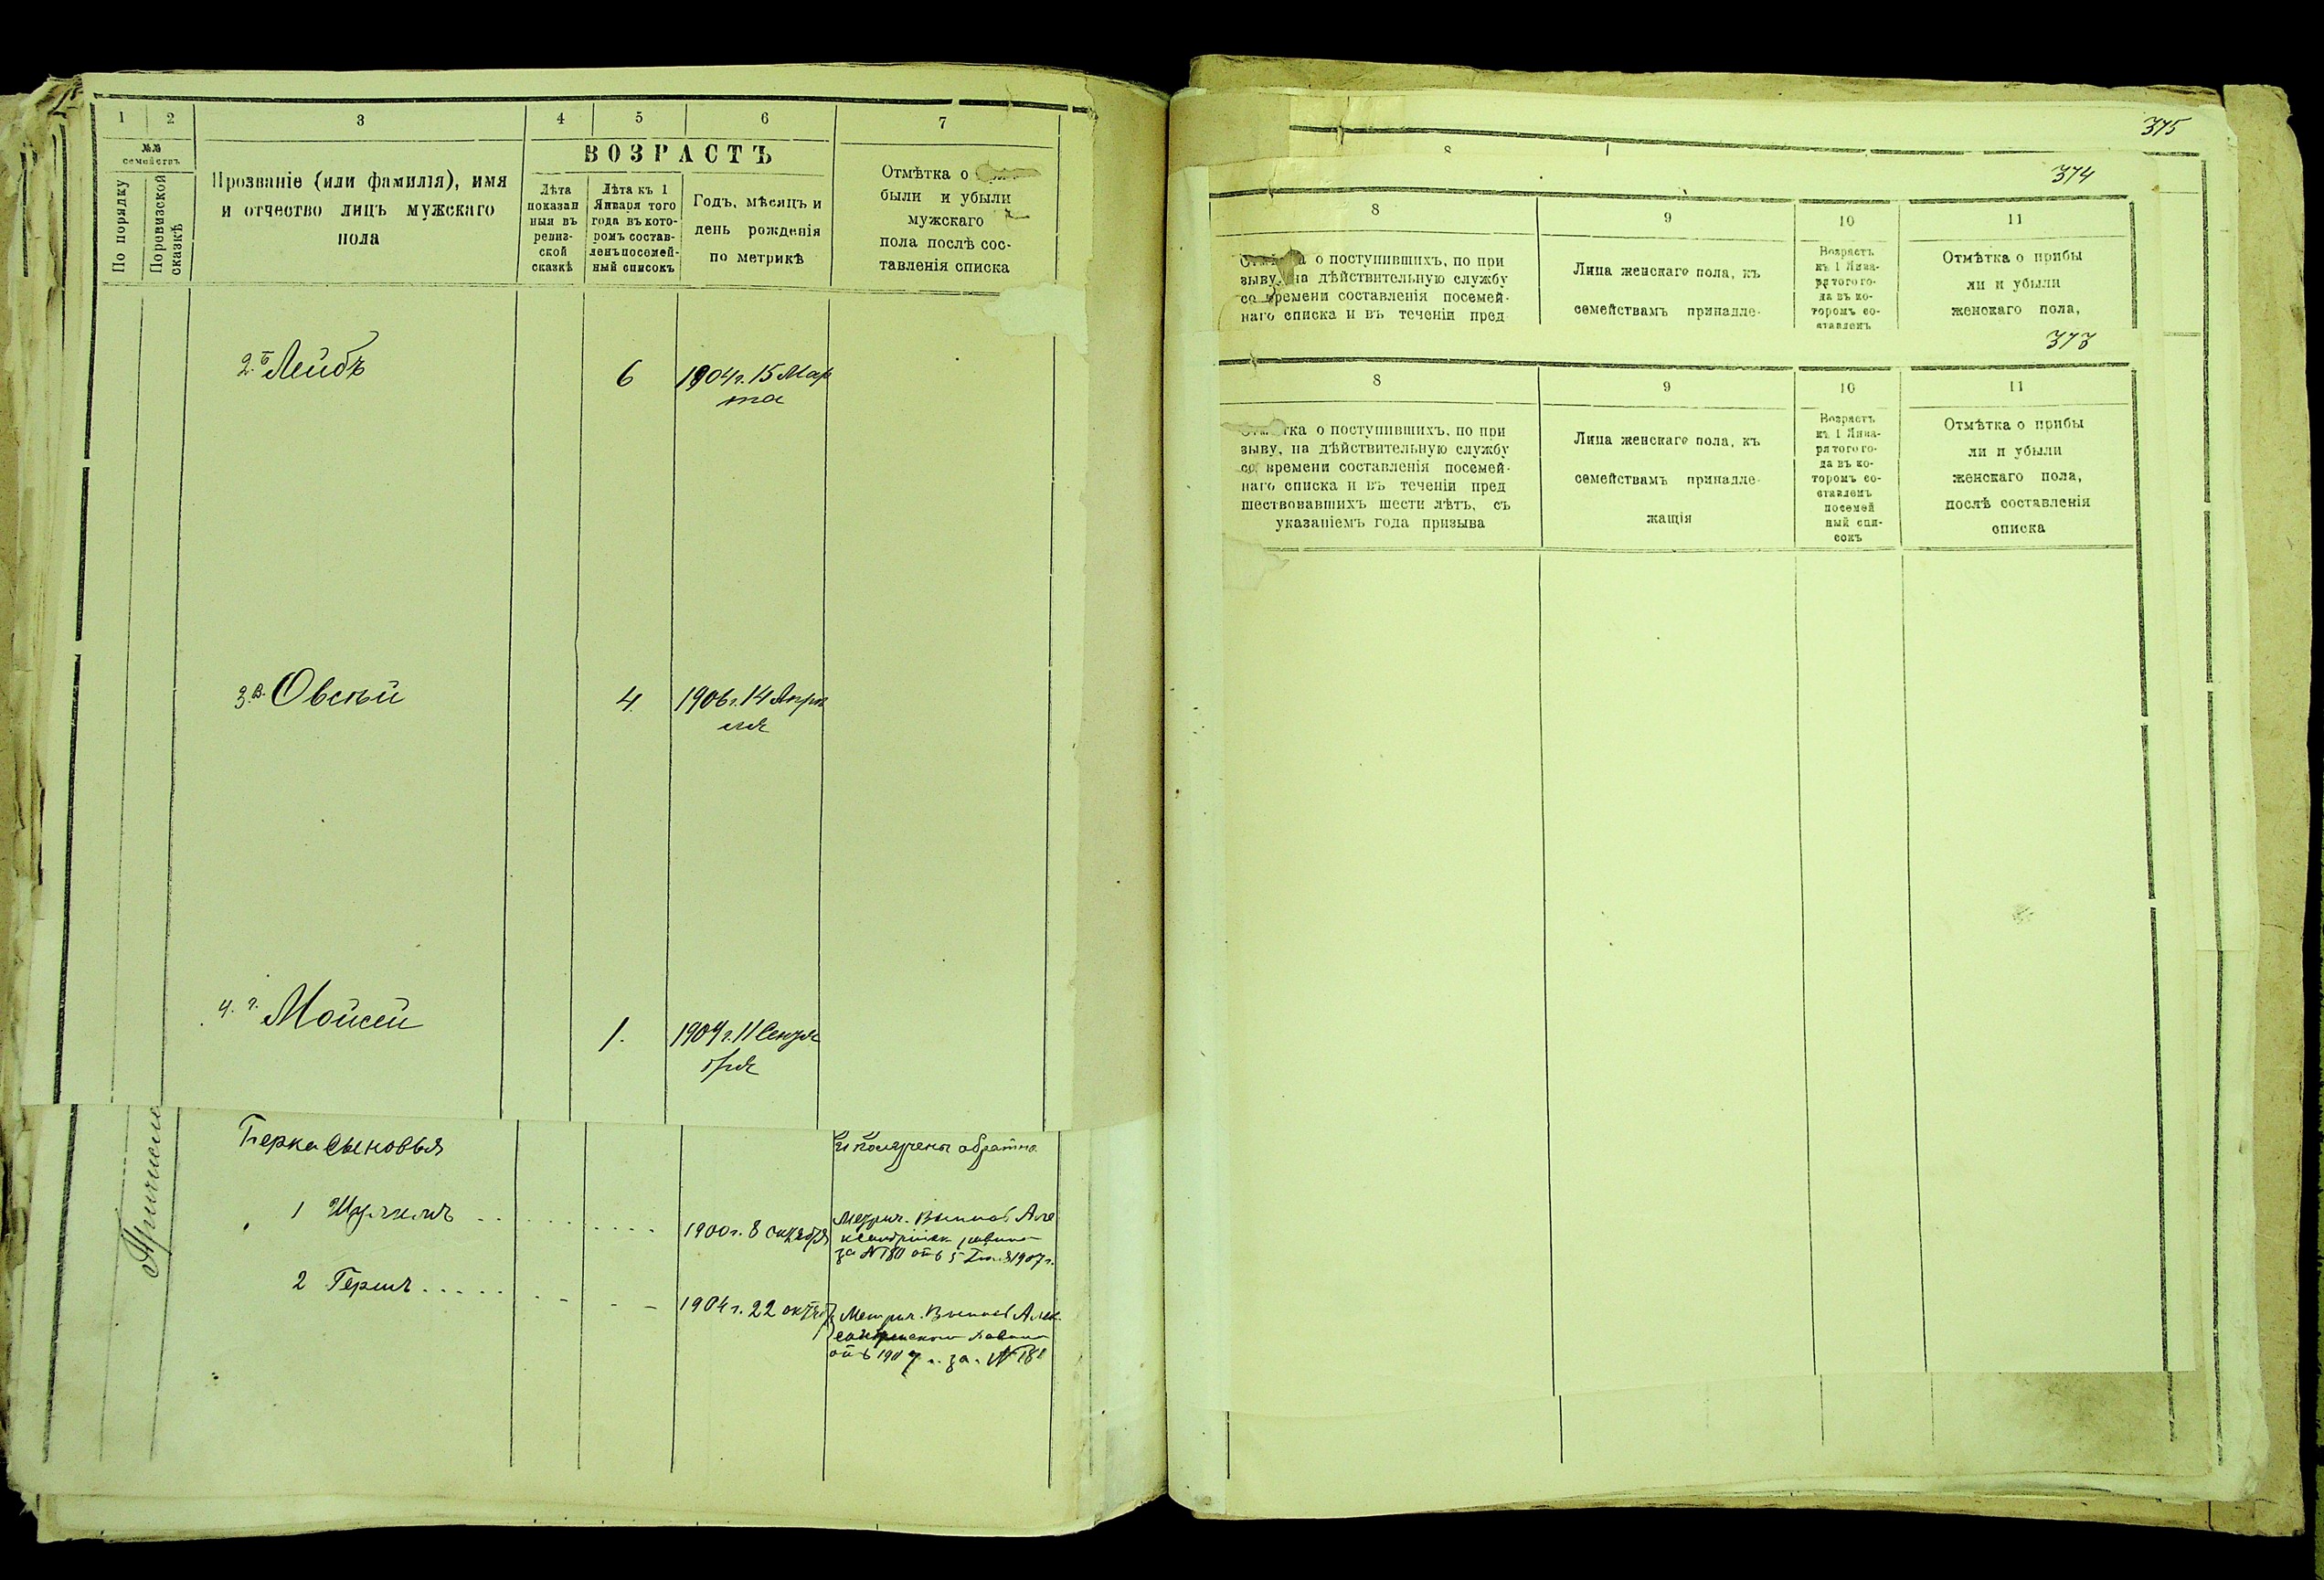 1 2 3 4 5 6 7
№№ семействъ
По порядку
Поревизской сказкѣ
Прозваніе (или фамилія), имя
и отчество лицъ мужскаго
пола
ВОЗРАСТЪ
Лѣта
показан
ныя въ
ревиз-
ской
сказкѣ
Лѣта къ 1
Января того
года въ кото-
ромъ состав-
ленъ посемей-
ный списокъ
Годъ, мѣсяцъ и
день рожденія
по метрикѣ
Отмѣтка о
были и убыли
мужскаго
пола послѣ сос-
тавленія списка
2. б Лейбъ 6 1904 г. 15 Мар
та
3. в. Овсѣй 4. 1906 г. 14 Апрѣ
ля
4. г. Мойсей 1. 1909 г. 11 Сентя
бря
Берка Сыновья и получены обратно
1 1900 г. 8 октября
Метрич. Выпись Але
за N 180 отъ 5 1907 г.
2 Герш 1904 г. 22 октяб
Метрич. Выпись Алек
отъ 1907 г. за N
375
8
374
8 9 10 11
о поступившихъ, по при
зыву, на дѣйствительную службу
со времени составленія посемей-
наго списка и въ теченіи пред
Лица женскаго пола, къ
семействамъ принадле-
Возрастъ
къ 1 Янва-
ря того го-
да въ ко-
торомъ со-
ставленъ
Отмѣтка о прибы
ли и убыли
женскаго пола,
373
8 9 10 11
Отмѣтка о поступившихъ, по при
зыву, на дѣйствительную службу
со времени составленія посемей-
наго списка и въ теченіи пред
шествовавшихъ шести лѣтъ, съ
указаніемъ года призыва
Лица женскаго пола, къ
семействамъ принадле-
жащія
Возрастъ
къ 1 Янва-
ря того го-
да въ ко-
торомъ со-
ставленъ
посемей
ный спи-
сокъ
Отмѣтка о прибы
ли и убыли
женскаго пола,
послѣ составленія
списка